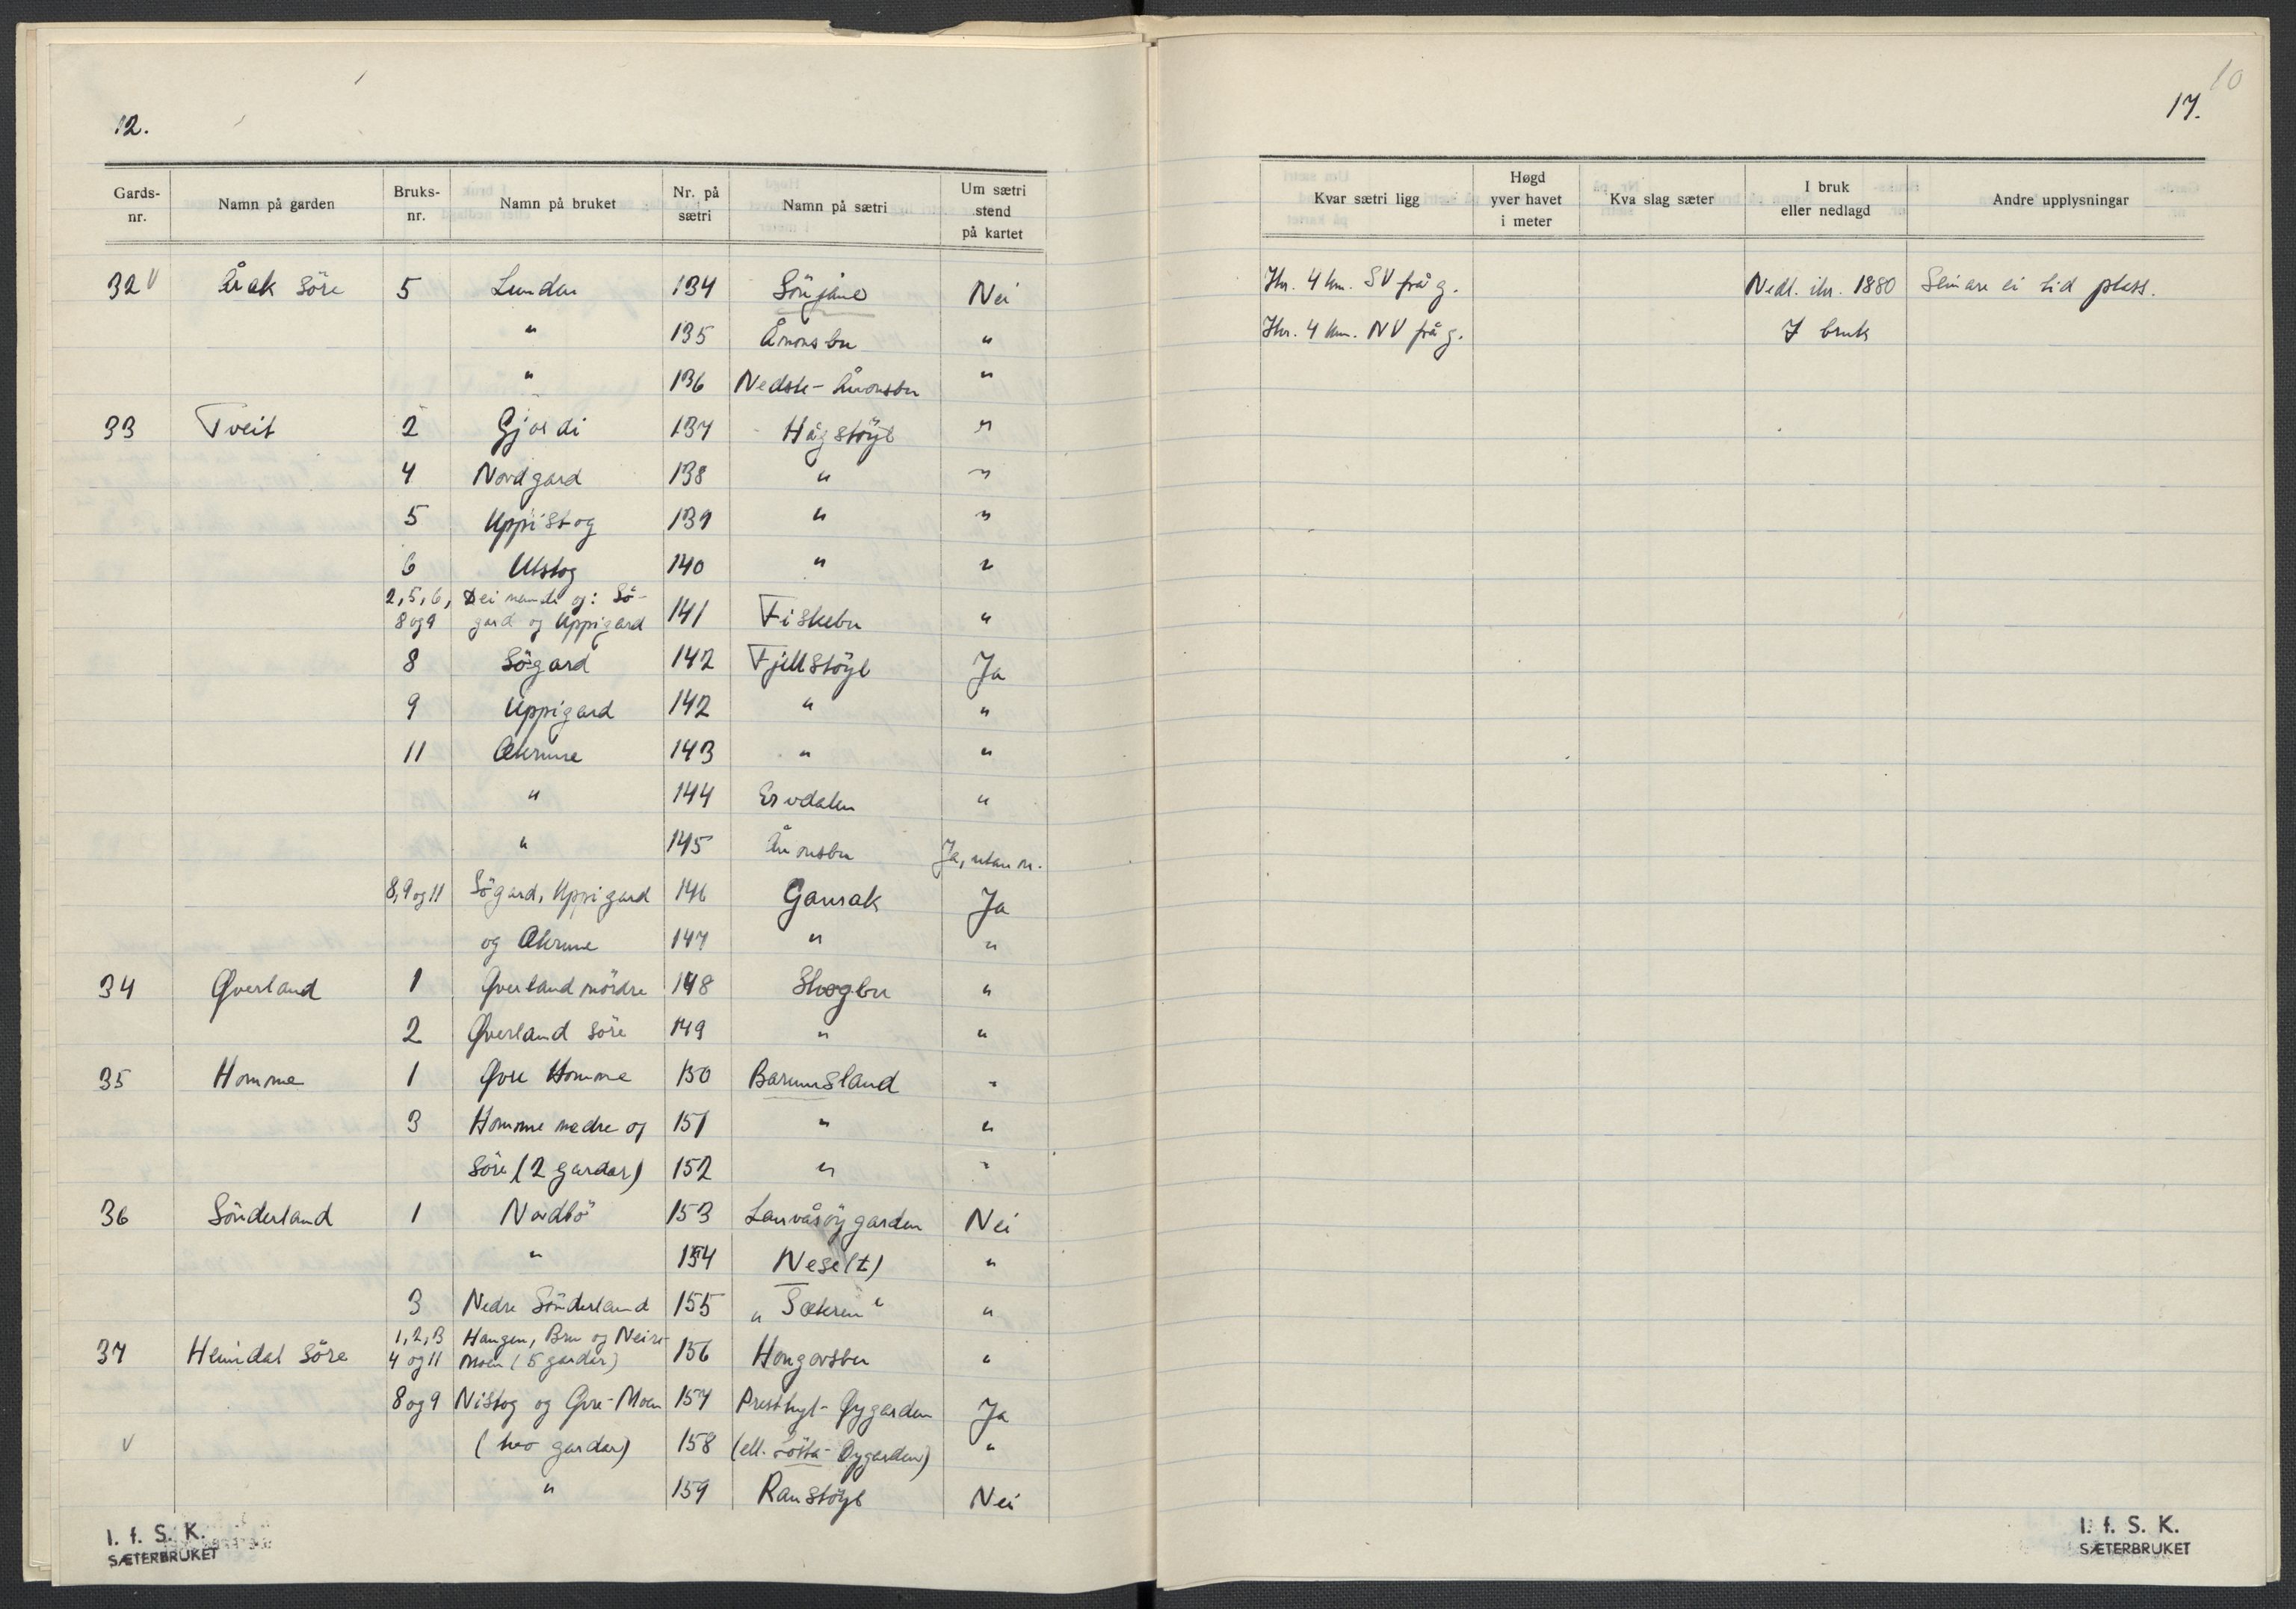 12.
Gards-nr. Namn på garden Bruks-nr. Namn på bruket Nr. på sætri Namn på sætri Um sætri stend på kartet
32 V Åråk Söre 5 Lunden 134 Nei
" 135 Åmonsbu "
" 136 Nedste-Åmonsbu "
33 Tveit 2 Gjördi 137 Högstöyl "
4 Nordgard 138 " "
5 Uppistog 139 " "
6 Utstog 140 " "
2, 5, 6, Dei nemnde og: Sö-
8 og 9 gard og Uppigard 141 Fiskebu "
8 Sögard 142 Fjellstöyl Ja
9 Uppigard 142 " "
11 Åkrune 143 " "
" 144 "
" 145 Åmonsbu Ja, utan n.
8, 9 og 11 Sögard, Uppigard 146 Gansak Ja
og Åkrune 147 " "
34 Øverland 1 Øverland nördre 148 Skogbu "
2 Øverland söre 149 " "
35 Homme 1 Øvre Homme 150 Barunsland "
3 Homme nedre og 151 " "
Söre (2 gardar) 152 " "
36 Sönderland 1 Nordbö 153 Lauvåsöygarden Nei
" 154 Nese(t) "
3 Nedre Sönderland 155 „Sæteren" "
1, 2, 3 Haugen, Bru og Neire-
37 Heimdal Söre 4 og 11 Moen (5 gardar) 156 Hongorsbu "
8 og 9 Nistog og Øvre-Moen 157 Øygarden Ja
V (tvo gardar) 158 (ell. Øygarden) "
" 159 Ranstöyl Nei
I. f. S. K.
SÆTERBRUKET
10
17.
Kvar sætri ligg Høgd yver havet i meter Kva slag sæter I bruk eller nedlagd Andre upplysningar
Ikr. 4 km. SV frå g. Nedl. ikr. 1880 Seinare ei tid plass.
Ikr. 4 km. NV frå g. I bruk
I. f. S. K.
SÆTERBRUKET